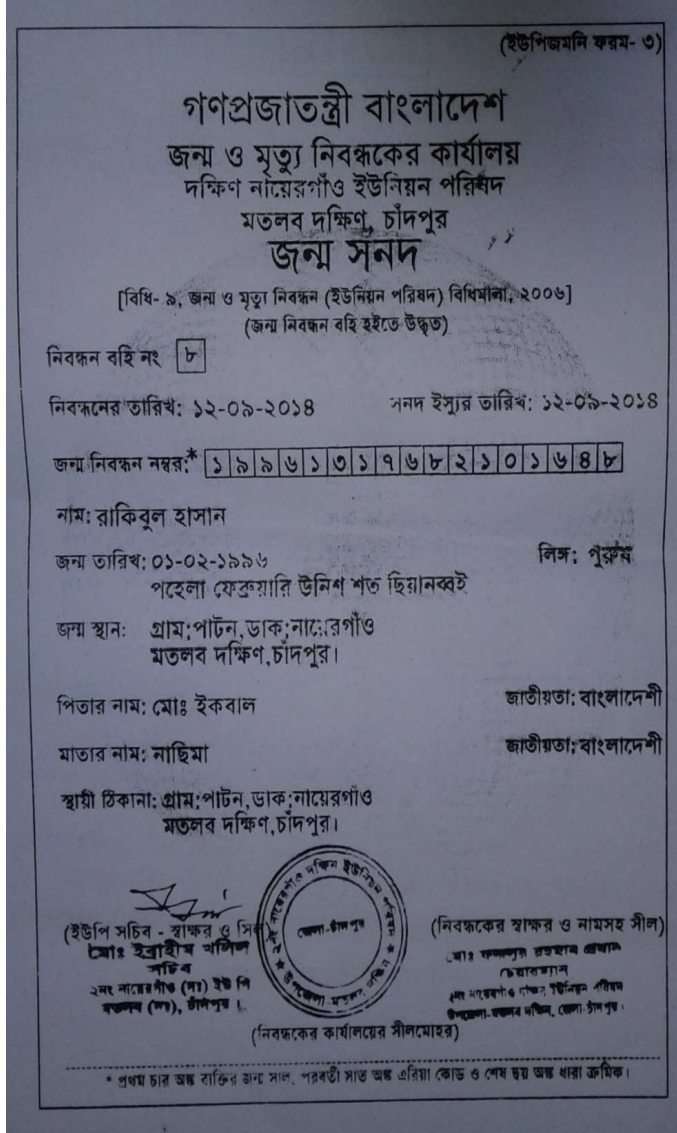 (ইউপিজমনি ফরম- ৩)
গণপ্রজাতন্ত্রী বাংলাদেশ
জন্ম ও মৃত্যু নিবন্ধকের কার্যালয়
দক্ষিণ নায়েরগাঁও ইউনিয়ন পরিষদ
মতলব দক্ষিণ, চাঁদপুর
জন্ম সনদ
[বিধি- ৯, জন্ম ও মৃত্যু নিবন্ধন (ইউনিয়ন পরিষদ) বিধিমালা, ২০০৬]
(জন্ম নিবন্ধন বহি হইতে উদ্ধৃত)
নিবন্ধন বহি নং ৮
নিবন্ধনের তারিখ: ১২-০৯-২০১৪ সনদ ইস্যুর তারিখ: ১২-০৯-২০১৪
জন্ম নিবন্ধন নম্বর:* ১৯৯৬১৩১৭৬৮২১০১৬৪৮
নাম: রাকিবুল হাসান
জন্ম তারিখ: ০১-০২-১৯৯৬ লিঙ্গ: পুরুষ
পহেলা ফেব্রুয়ারি উনিশ শত ছিয়ানব্বই
জন্ম স্থান: গ্রাম:পাটন,ডাক:নায়েরগাঁও
মতলব দক্ষিণ,চাঁদপুর।
পিতার নাম: মোঃ ইকবাল জাতীয়তা: বাংলাদেশী
মাতার নাম: নাছিমা জাতীয়তা: বাংলাদেশী
স্থায়ী ঠিকানা: গ্রাম:পাটন,ডাক:নায়েরগাঁও
মতলব দক্ষিণ,চাঁদপুর।
(ইউপি সচিব - স্বাক্ষর ও (নিবন্ধকের স্বাক্ষর ও নামসহ সীল)
মোঃ ইব্রাহীম খলিল
সচিব
২নং নায়েরগাঁও (দঃ) ইউ পি
মতলব (দঃ), চাঁদপুর।
চেয়ারম্যান
২নং নায়েরগাঁও দক্ষিণ ইউনিয়ন পরিষদ
উপজেলা-মতলব দক্ষিণ, জেলা-চাঁদপুর।
২নং নায়েরগাঁও দক্ষিণ ইউনিয়ন পরিষদ
জেলা-চাঁদপুর
উপজেলা-মতলব দক্ষিণ
(নিবন্ধকের কার্যালয়ের সীলমোহর)
* প্রথম চার অঙ্ক ব্যক্তির জন্ম সাল, পরবর্তী সাত অঙ্ক এরিয়া কোড ও শেষ ছয় অঙ্ক ধারা ক্রমিক।